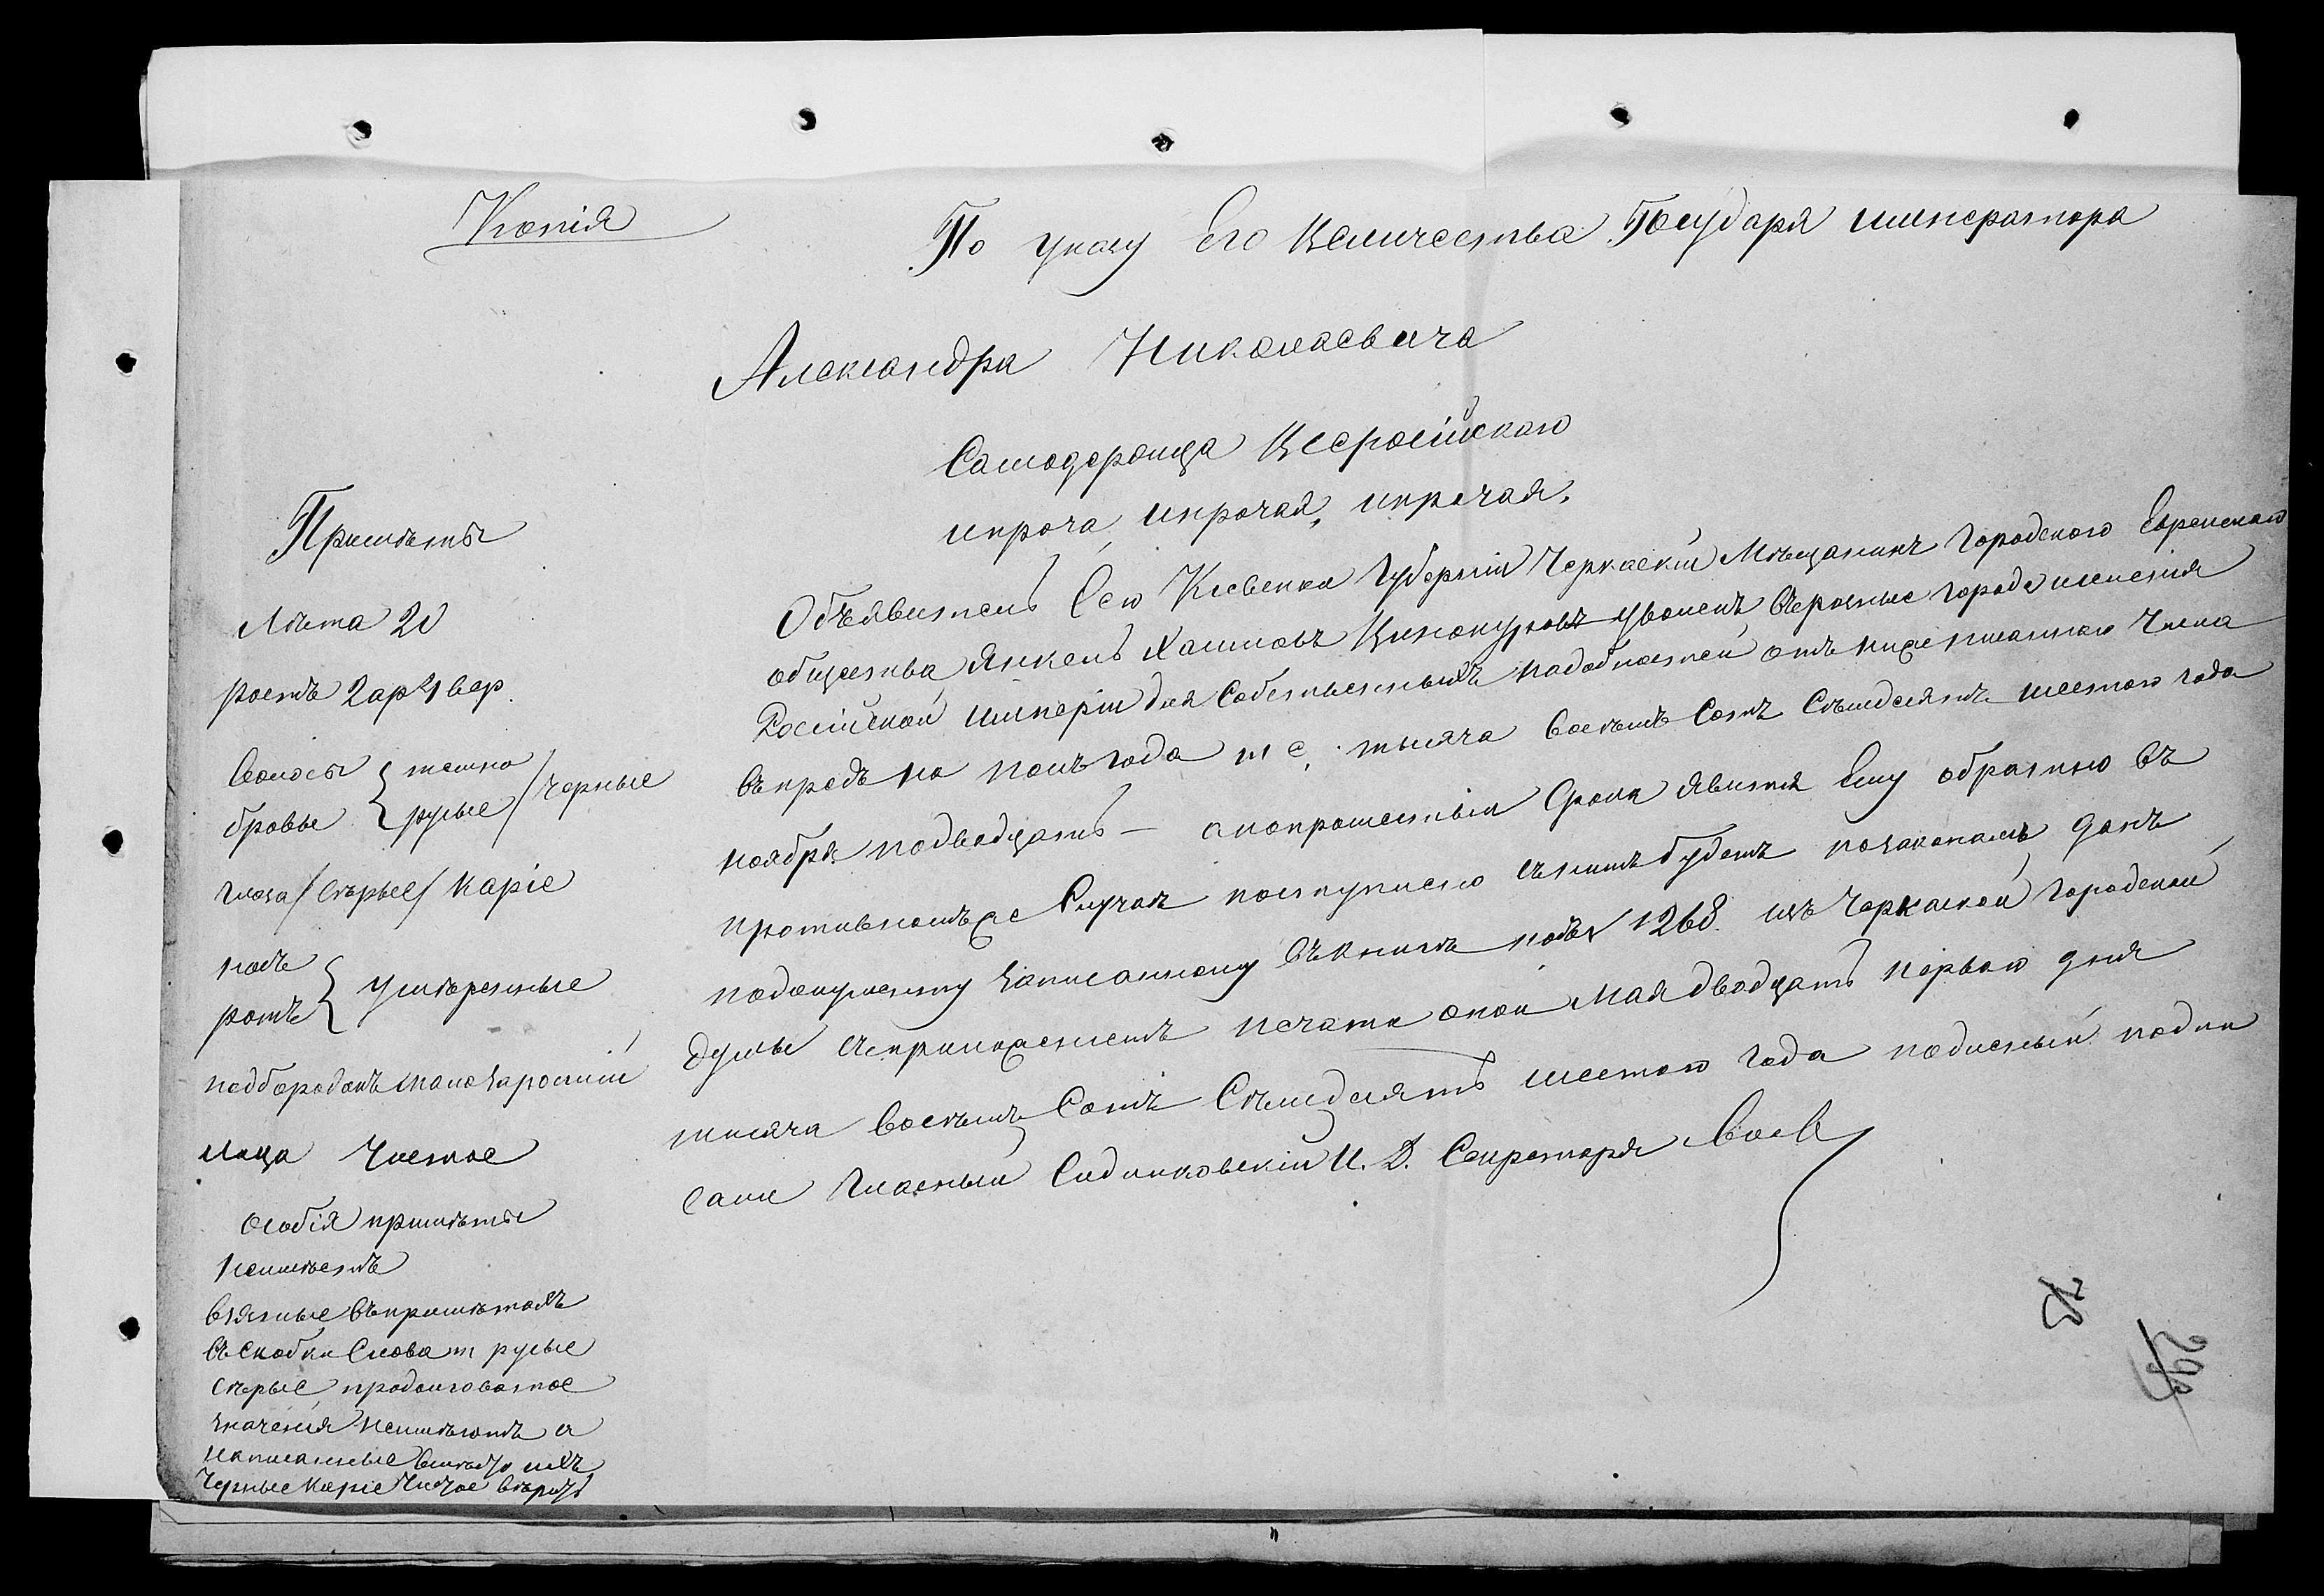 Копія
По указу Его Величества Государя императора
Александра Николаевича
Самодержца Всеросійскаго
ипроча, ипрочая, ипрочая.
Примѣты
Лѣта 20
ростъ 2 ар 4 вер.
волосы { темно
бровы { русые / черные
глаза / сѣрые / каріе
носъ
ротъ { умѣренные
подбородокъ
лица Чистое
особія примѣты
неимѣетъ
взятые въпримѣтахъ
въ скобки Слова т русые
сѣрые продолговатое
значенія неимѣютъ а
написанные вмѣсто ихъ
Черные каріе Чистое вѣрить
Объявитель Сего Кіевской Губерніи Черкаскій Мѣщанинъ Городского Еврейскаго
общества Янкель Хаимовъ Винокуровъ уволенъ вѣразные города иселенія
Російской имперіи для Собственныхъ надобностей отъ нижеписаннаго Числа
въпредъ на полъ года т е. тысяча восѣмъ Сотъ Сѣмдесятъ шестого года
ноября подвадцать — апопрошествіи Срока явится Ему обратно въ
противномъже Случаѣ поступлено сънимъ будетъ позаконамъ данъ
подокументу Записанному въкнигѣ подъ № 1268. изъ Черкаской Городской
думы Сприложеніемъ печати оной Мая двадцать перваго дня
тисяча восѣмъ Сотъ Сѣмдесятъ шестого года подленый подпи
сали Гласный И. Д. Секретаря